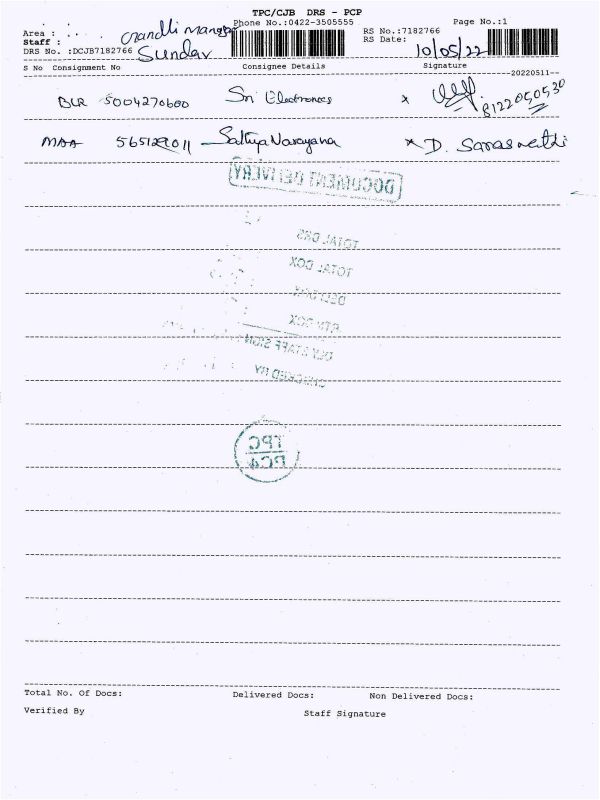 TPC/CJB DRS - PCP
Phone No.:0422-3505555
Page No.:1
Area :
Staff : Sundar
RS No.:7182766
RS Date: 10/05/22
DRS No. :DCJB7182766
S No Consignment No Consignee Details Signature
--20220511--
BLR 5004270600 Sri Electronics x 8122050530
MAA 565129011 Sathya Narayana x D. Saraswathi
DOCUMENT DELIVERY
TOTAL DRS
TOTAL DOX
DELI DOX
RTN DOX
DLY STAFF SIGN
CHECKED BY
TPC
PC4
Total No. Of Docs: Delivered Docs: Non Delivered Docs:
Verified By Staff Signature